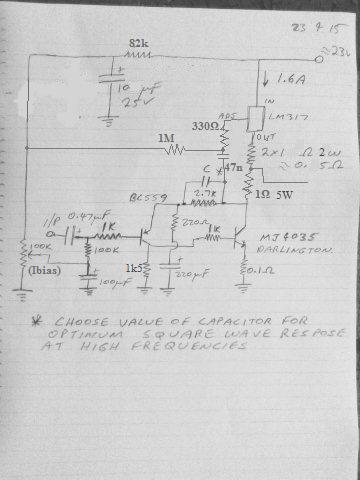 23 4 15
82k
≈23v
+
10 µF
25V
1.6A
IN
ADJ
LM317
330Ω
OUT
1M
2x1 Ω 2W
≈ 0.5Ω
*47n
C
2.7K
1Ω 5W
BC559
I/P 0.47µF
1K
220Ω
1K
MJ4035
DARLINGTON
100K
100K
(Ibias)
1k5
+
220µF
0.1Ω
+
100µF
* CHOOSE VALUE OF CAPACITOR FOR
OPTIMUM SQUARE WAVE RESPOSE
AT HIGH FREQUENCIES